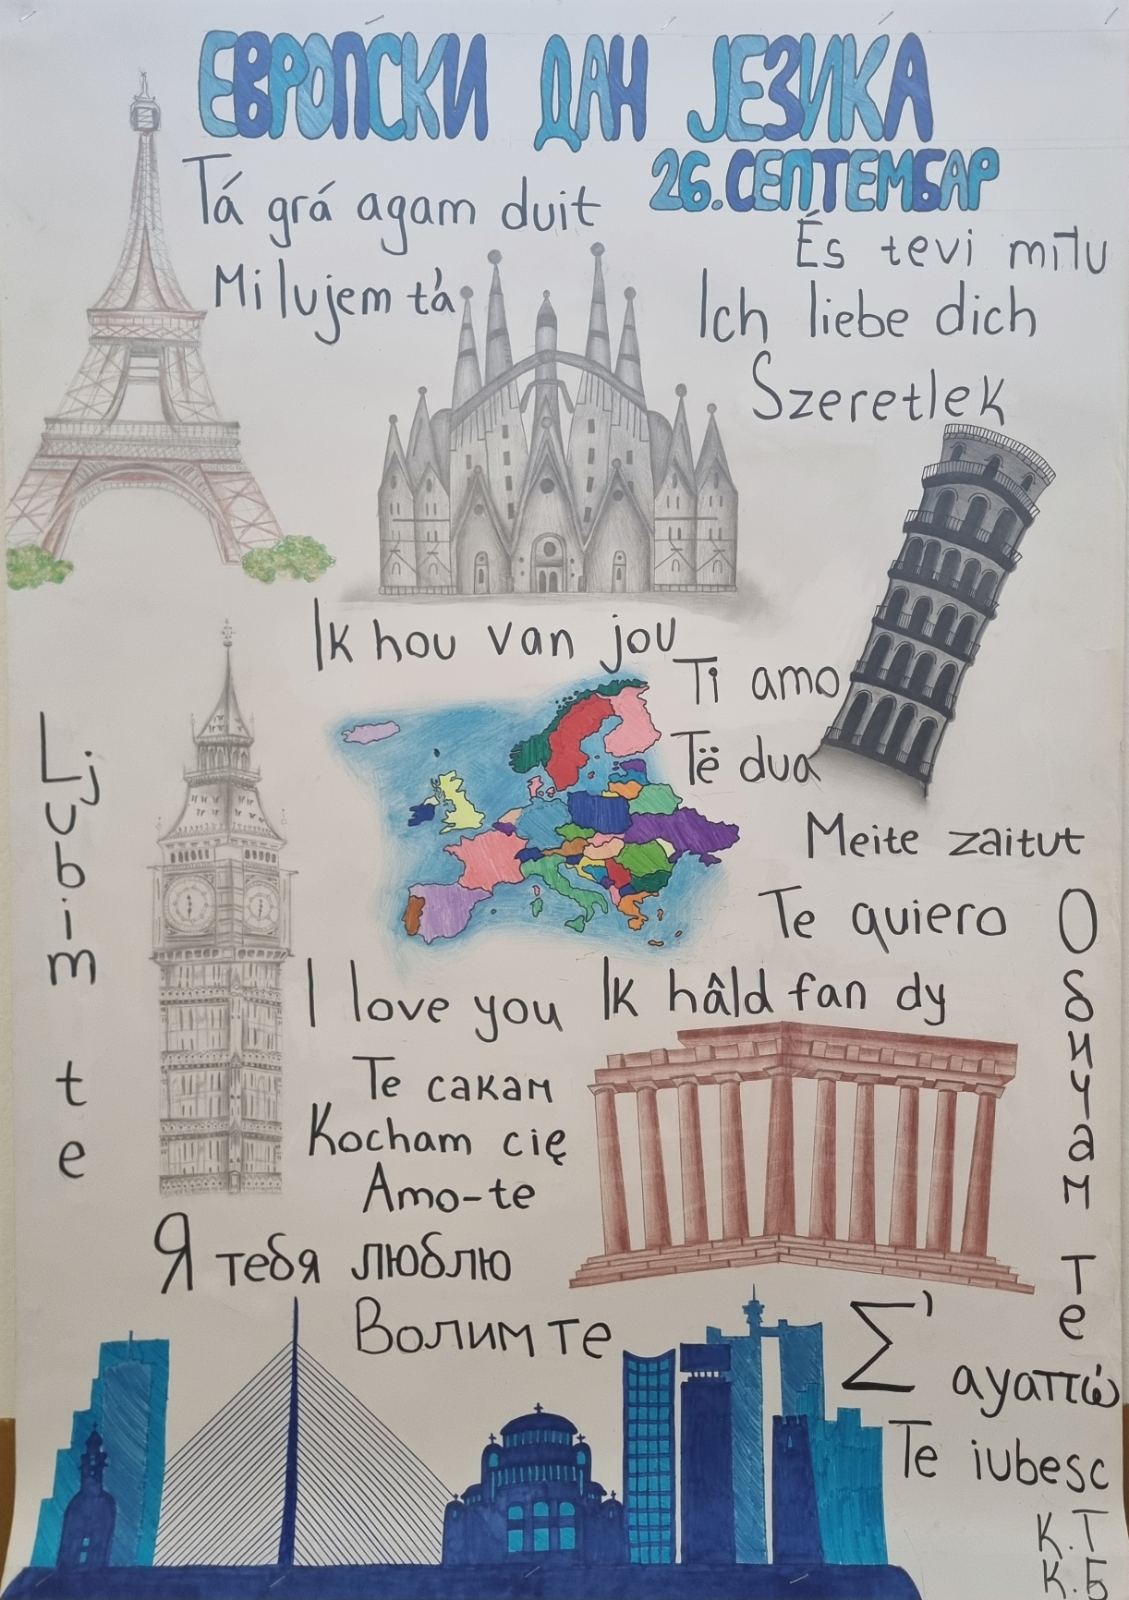 ЕВРОПСКИ ДАН ЈЕЗИКА
26.СЕПТЕМБАР
Tá grá agam duit
És tevi mīlu
Milujem ťa
Ich liebe dich
Szeretlek
Ik hou van jou
Ti amo
Të dua
Ljubim te
Meite zaitut
Te quiero
Обичам те
I love you
Ik hâld fan dy
Те сакам
Kocham cię
Amo-te
Я тебя люблю
Волим те
Σ' αγαπώ
Te iubesc
К.Т
К.Б